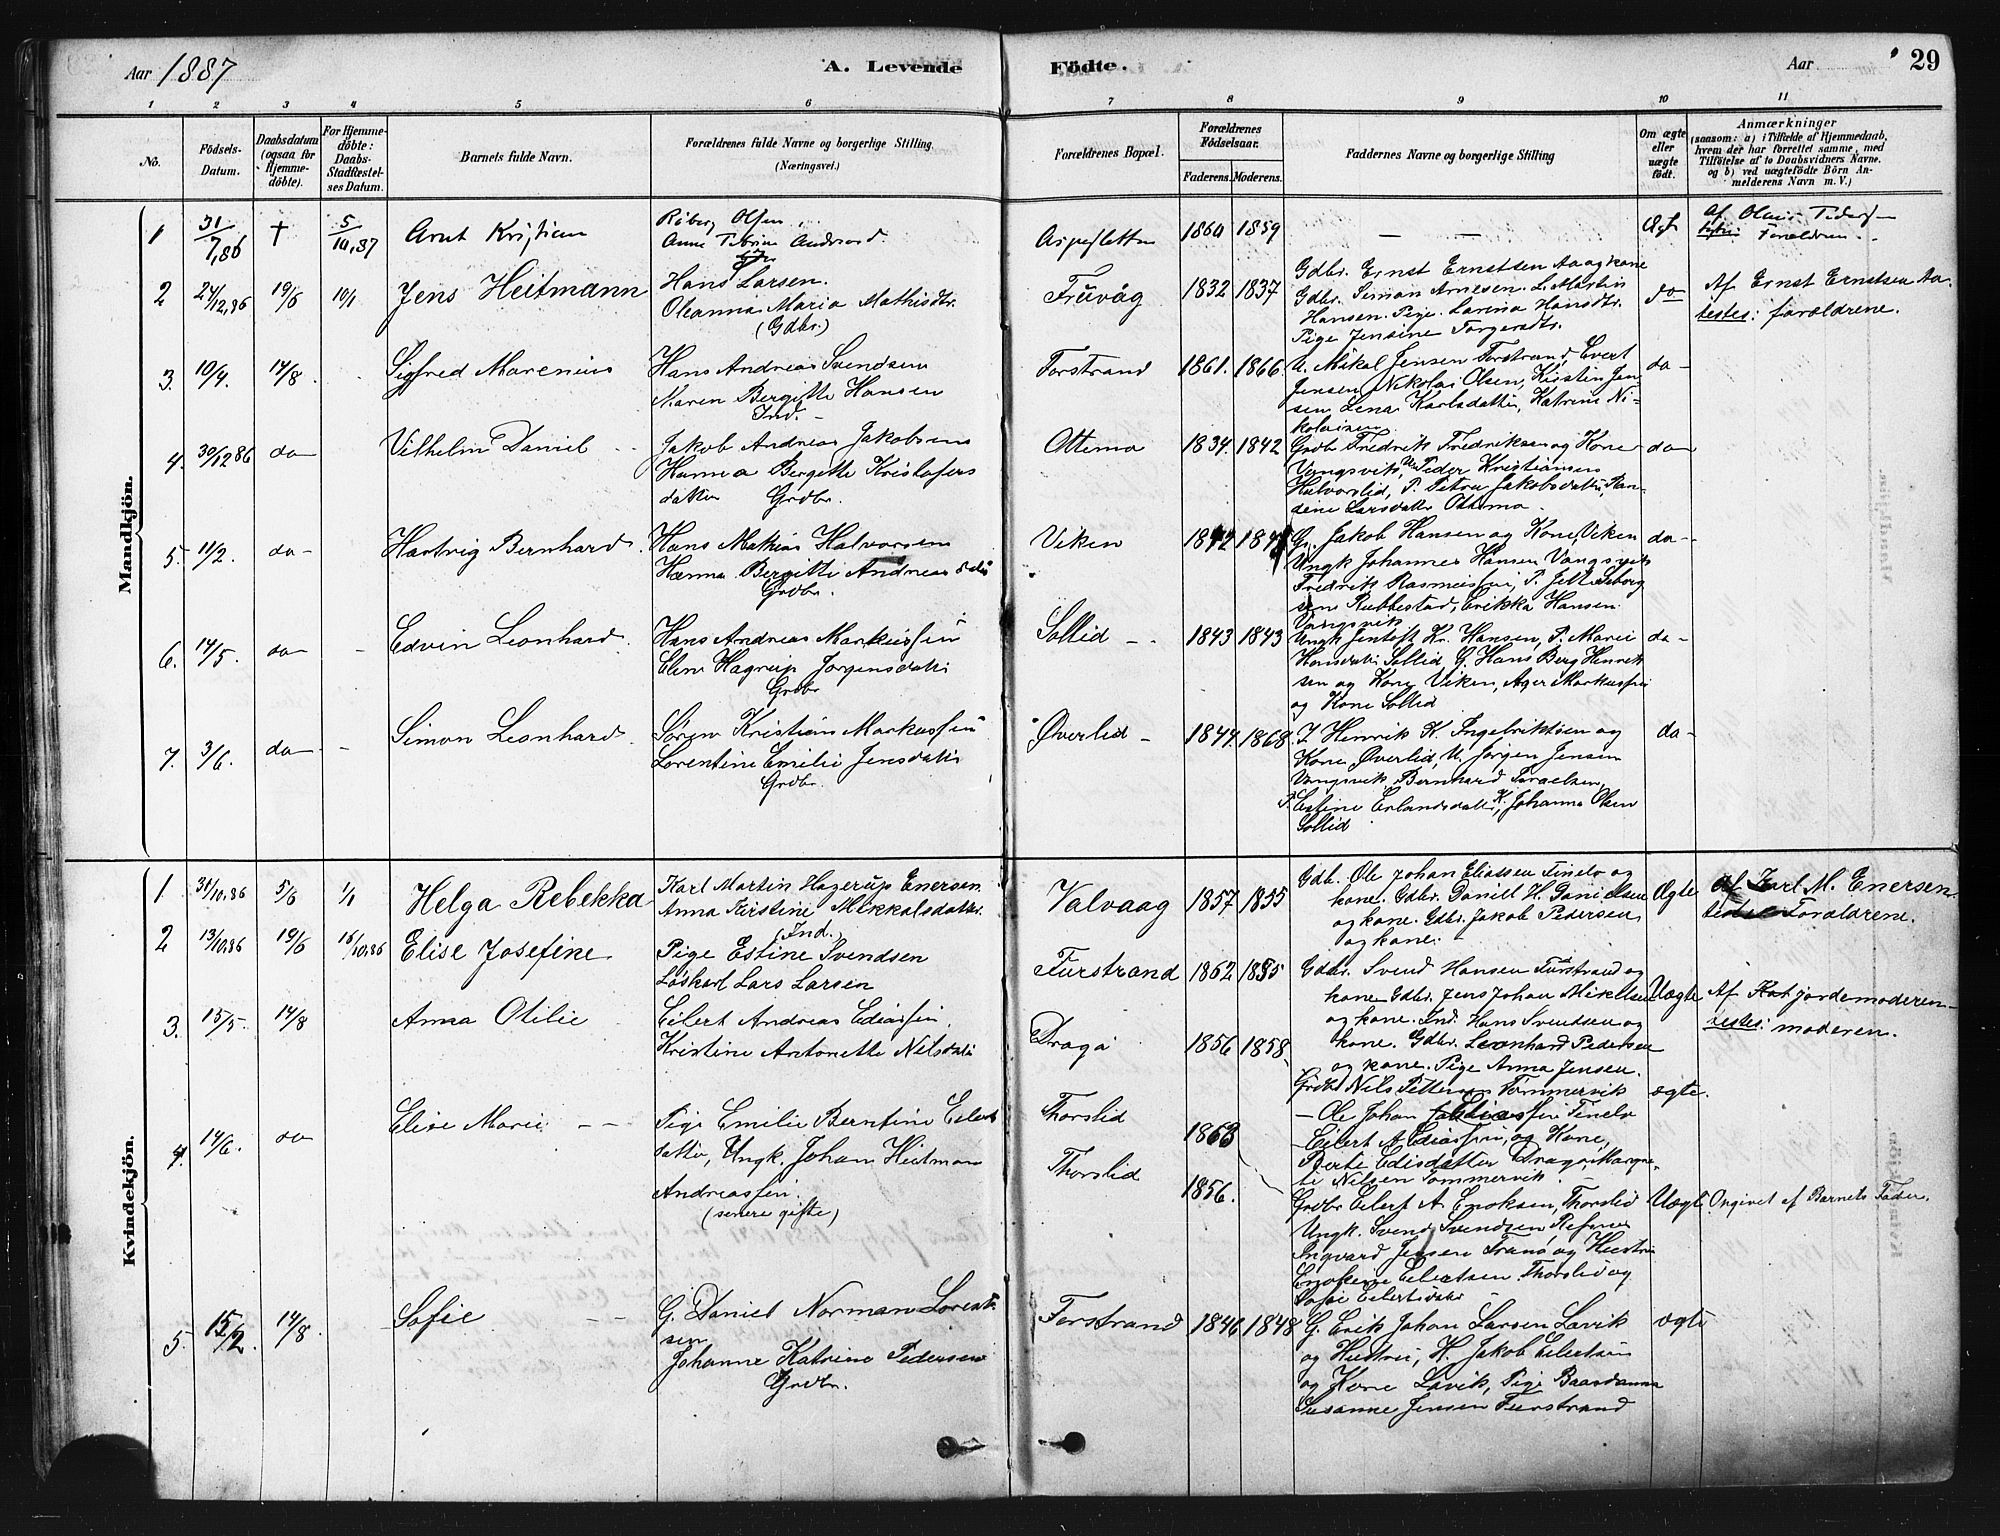 Aar 1887
A. Levende
Födte.
Aar
29
1 2 3 4 5 6 7 8 9 10 11
No.
Födsels-
Datum.
Daabsdatum
(ogsaa for
Hjemme-
döbte).
For Hjemme-
döbte:
Daabs-
Stadfæstel-
ses Datum.
Barnets fulde Navn.
Forældrenes fulde Navne og borgerlige Stilling.
(Næringsvei.)
Forældrenes Bopæl.
Forældrenes
Födselsaar.
Faderens. Moderens.
Faddernes Navne og borgerlige Stilling
Om ægte
eller
uægte
födt.
Anmærkninger
(saasom: a) i Tilfælde af Hjemmedaab,
hvem der har forrettet samme, med
Tilföielse af to Daabsvidners Navne.
og b) ved uægtefödte Börn An-
melderens Navn m. V.)
Mandkjön.
1 31/7,86 † 5/10,87 Arnt Kristian
Olsen
Anne
1860 1859 — —
Af
Forældren
2 24/12,86 19/6 10/1 Jens Heitmann
Hans Larsen.
Oleanna Maria Mathisdtr.
(Gdbr.)
Fruvåg 1832 1837
Gdbr. Ernst Ernstsen Aa og kone
Gdbr. Simon Arnesen. L. Martin
Hansen. Pige Larina Hansdtr.
Pige Jensine Torgersdtr.
do
Af Ernst Ernstsen Aa.
testes: forældrene.
3. 10/4. 14/8. Sigfred Marenius
Hans Andreas Svendsen
Maren Bergitte Hansen
Ind.
Forstrand 1861. 1866.
U. Mikal Jensen Forstrand, Evert
Jensen, Nikolai Olsen, Kistin Jen-
sen, Lena Karlsdatter, Katrine Ni-
kolaisen.
da-
4. 30/12 86 da- Vilhelm Daniel
Jakob Andreas Jakobsen
Hanna Bergitte Kristofers
datter Grdbr.
Ottema 1834. 1842
Grdb Fredrik Fredriksen og Kone
Vangsvik, U. Peder Kristiansen
Halvorslid, P. Petra Jakobsdatter, Han-
dene Larsdatter Ottema.
da-
5. 11/2. da- Hartvig Bernhard.
Hans Mathias Halvorsen
Hanna Bergitte Andreasdatter
Grdbr.
Viken
G. Jakob Hansen og Kone, Viken
Ungk Johannes Hansen Vangsvik
Fredrik Rasmussen, P.
Rubbestad, Erikka Hansen
Vangsvik
da-
6. 14/5. da- Edvin Leonhard
Hans Andreas Markussen
Elen Hagerup Jørgensdatter
Grdbr
Sollid - 1843 1843
Ungk Jentoft Kr. Hansen, P. Marei
Hansdatter Sollid, G. Hans Berg Henrik
sen og Kone Viken, Ager Markussen
og Kone Sollid
da-
7. 3/6. da- Simon Leonhard
Søren Kristian Markussen
Lorentine Emilie Jensdatter
Grdbr.
Øverlid - 1844. 1868.
I Henrik K. Ingebriktsen og
Kone Øverlid, U. Jørgen Jensen
Vangsvik, Bernhard Israelsen,
P. Estine Erlandsdatter, K. Johanna Olsen
Sollid
da-
Kvindekjön.
1. 31/10,86 5/6 1/1 Helga Rebekka
Karl Martin Hagerup Enersen
Anna Kirstine Mikkalsdatter.
(Ind.)
Valvaag 1857 1855
Gdb. Ole Johan Eliassen Finelv og
kone. Gdbr. Daniel H. Danielsen
og kone. Gdbr. Jakob Pedersen
og kone.
Ægte
Af Karl M. Enersen
testes Forældrene.
2 13/10,86 19/6 16/10,86 Elise Josefine
Pige Estine Svendsen
Løskarl Lars Larsen
Furstrand 1862 1855
Gdbr. Svend Hansen Furstrand og
kone Gdbr. Jens Johan Mikelsen
og kone. Ind. Hans Svendsen og
kone. Gdbr. Leonhard Pedersen
og kone. Pige Anna Jensen.
Uægte
Af jordemoderen
testes: moderen.
3. 15/5. 14/8 Anna Otilie
Eilert Andreas Ediassen
Kristine Antonette Nilsdatter
Dragå 1856 1858
Grdbr Nils Pettersen Tømmervik
— Ole Johan Finelv
— Eilert A Ediassen og Kone,
Berte Edisdatter Dragå, Margre-
te Nilsen Tommervik.
ægte.
4. 14/6. da Elise Marie
Pige Emilie Berntine Eilert
datter, Ungk. Johan Heitman
Andreassen.
(senere gifte)
Thorslid 1863
Thorslid 1856.
Grdbr Eilert A. Enoksen, Thorslid
Ungk. Svend Svendsen Refsnes
Ingvard Jensen Tranø og Hustru
Enokine Eilertsen. Thorslid og
Sofie Eilertsdatter
Uægte
Ongivet af Barnets Fader.
5. 15/2. 14/8. Sofie
G. Daniel Norman Lorent
sen
Johanne Katrine Pedersen
Grdbr.
Forstrand 1846 1848
G. Erik Johan Larsen Lavik
og Hustru, H. Jakob Eilertsen
og Kone Lavik, Pige
Susanne Jensen Furstrand
ægte